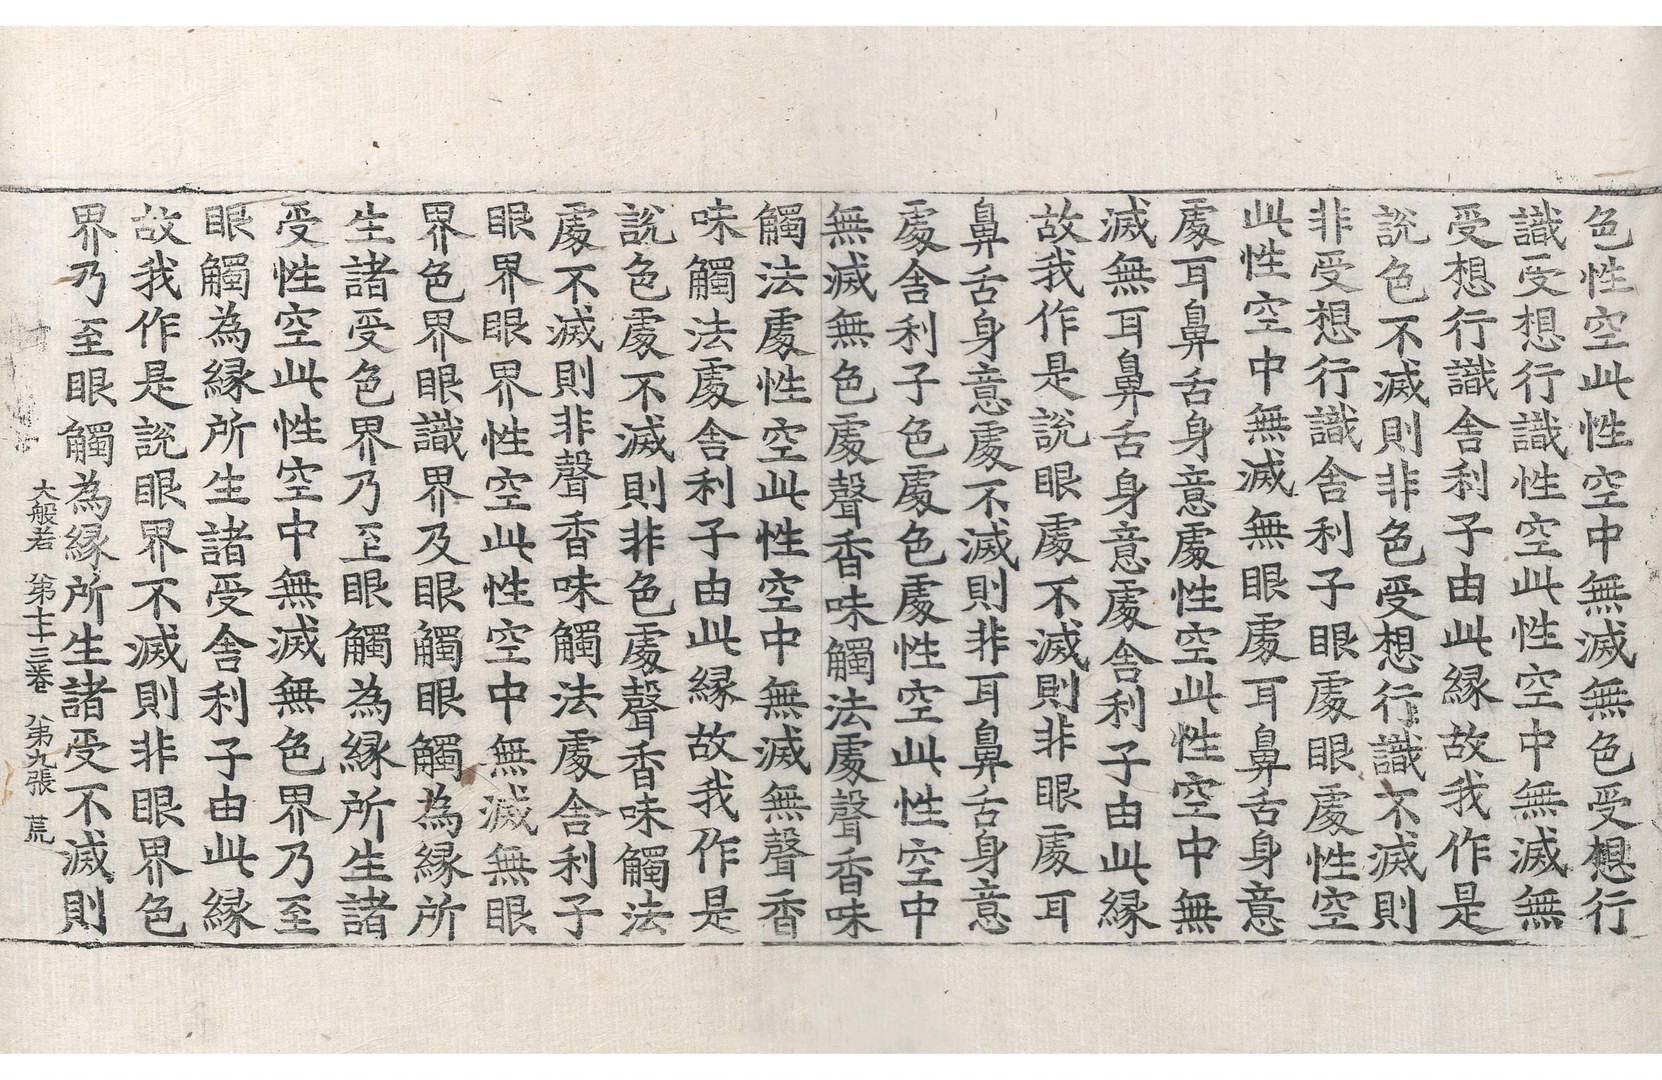 色性空此性空中無滅無色受想行
識受想行識性空此性空中無滅無
受想行識舍利子由此緣故我作是
說色不滅則非色受想行識不滅則
非受想行識舍利子眼處眼處性空
此性空中無滅無眼處耳鼻舌身意
處耳鼻舌身意處性空此性空中無
滅無耳鼻舌身意處舍利子由此緣
故我作是說眼處不滅則非眼處耳
鼻舌身意處不滅則非耳鼻舌身意
處舍利子色處色處性空此性空中
無滅無色處聲香味觸法處聲香味
觸法處性空此性空中無滅無聲香
味觸法處舍利子由此緣故我作是
說色處不滅則非色處聲香味觸法
處不滅則非聲香味觸法處舍利子
眼界眼界性空此性空中無滅無眼
界色界眼識界及眼觸眼觸為緣所
生諸受色界乃至眼觸為緣所生諸
受性空此性空中無滅無色界乃至
眼觸為緣所生諸受舍利子由此緣
故我作是說眼界不滅則非眼界色
界乃至眼觸為緣所生諸受不滅則
大般若 第七十三卷 第九張 荒